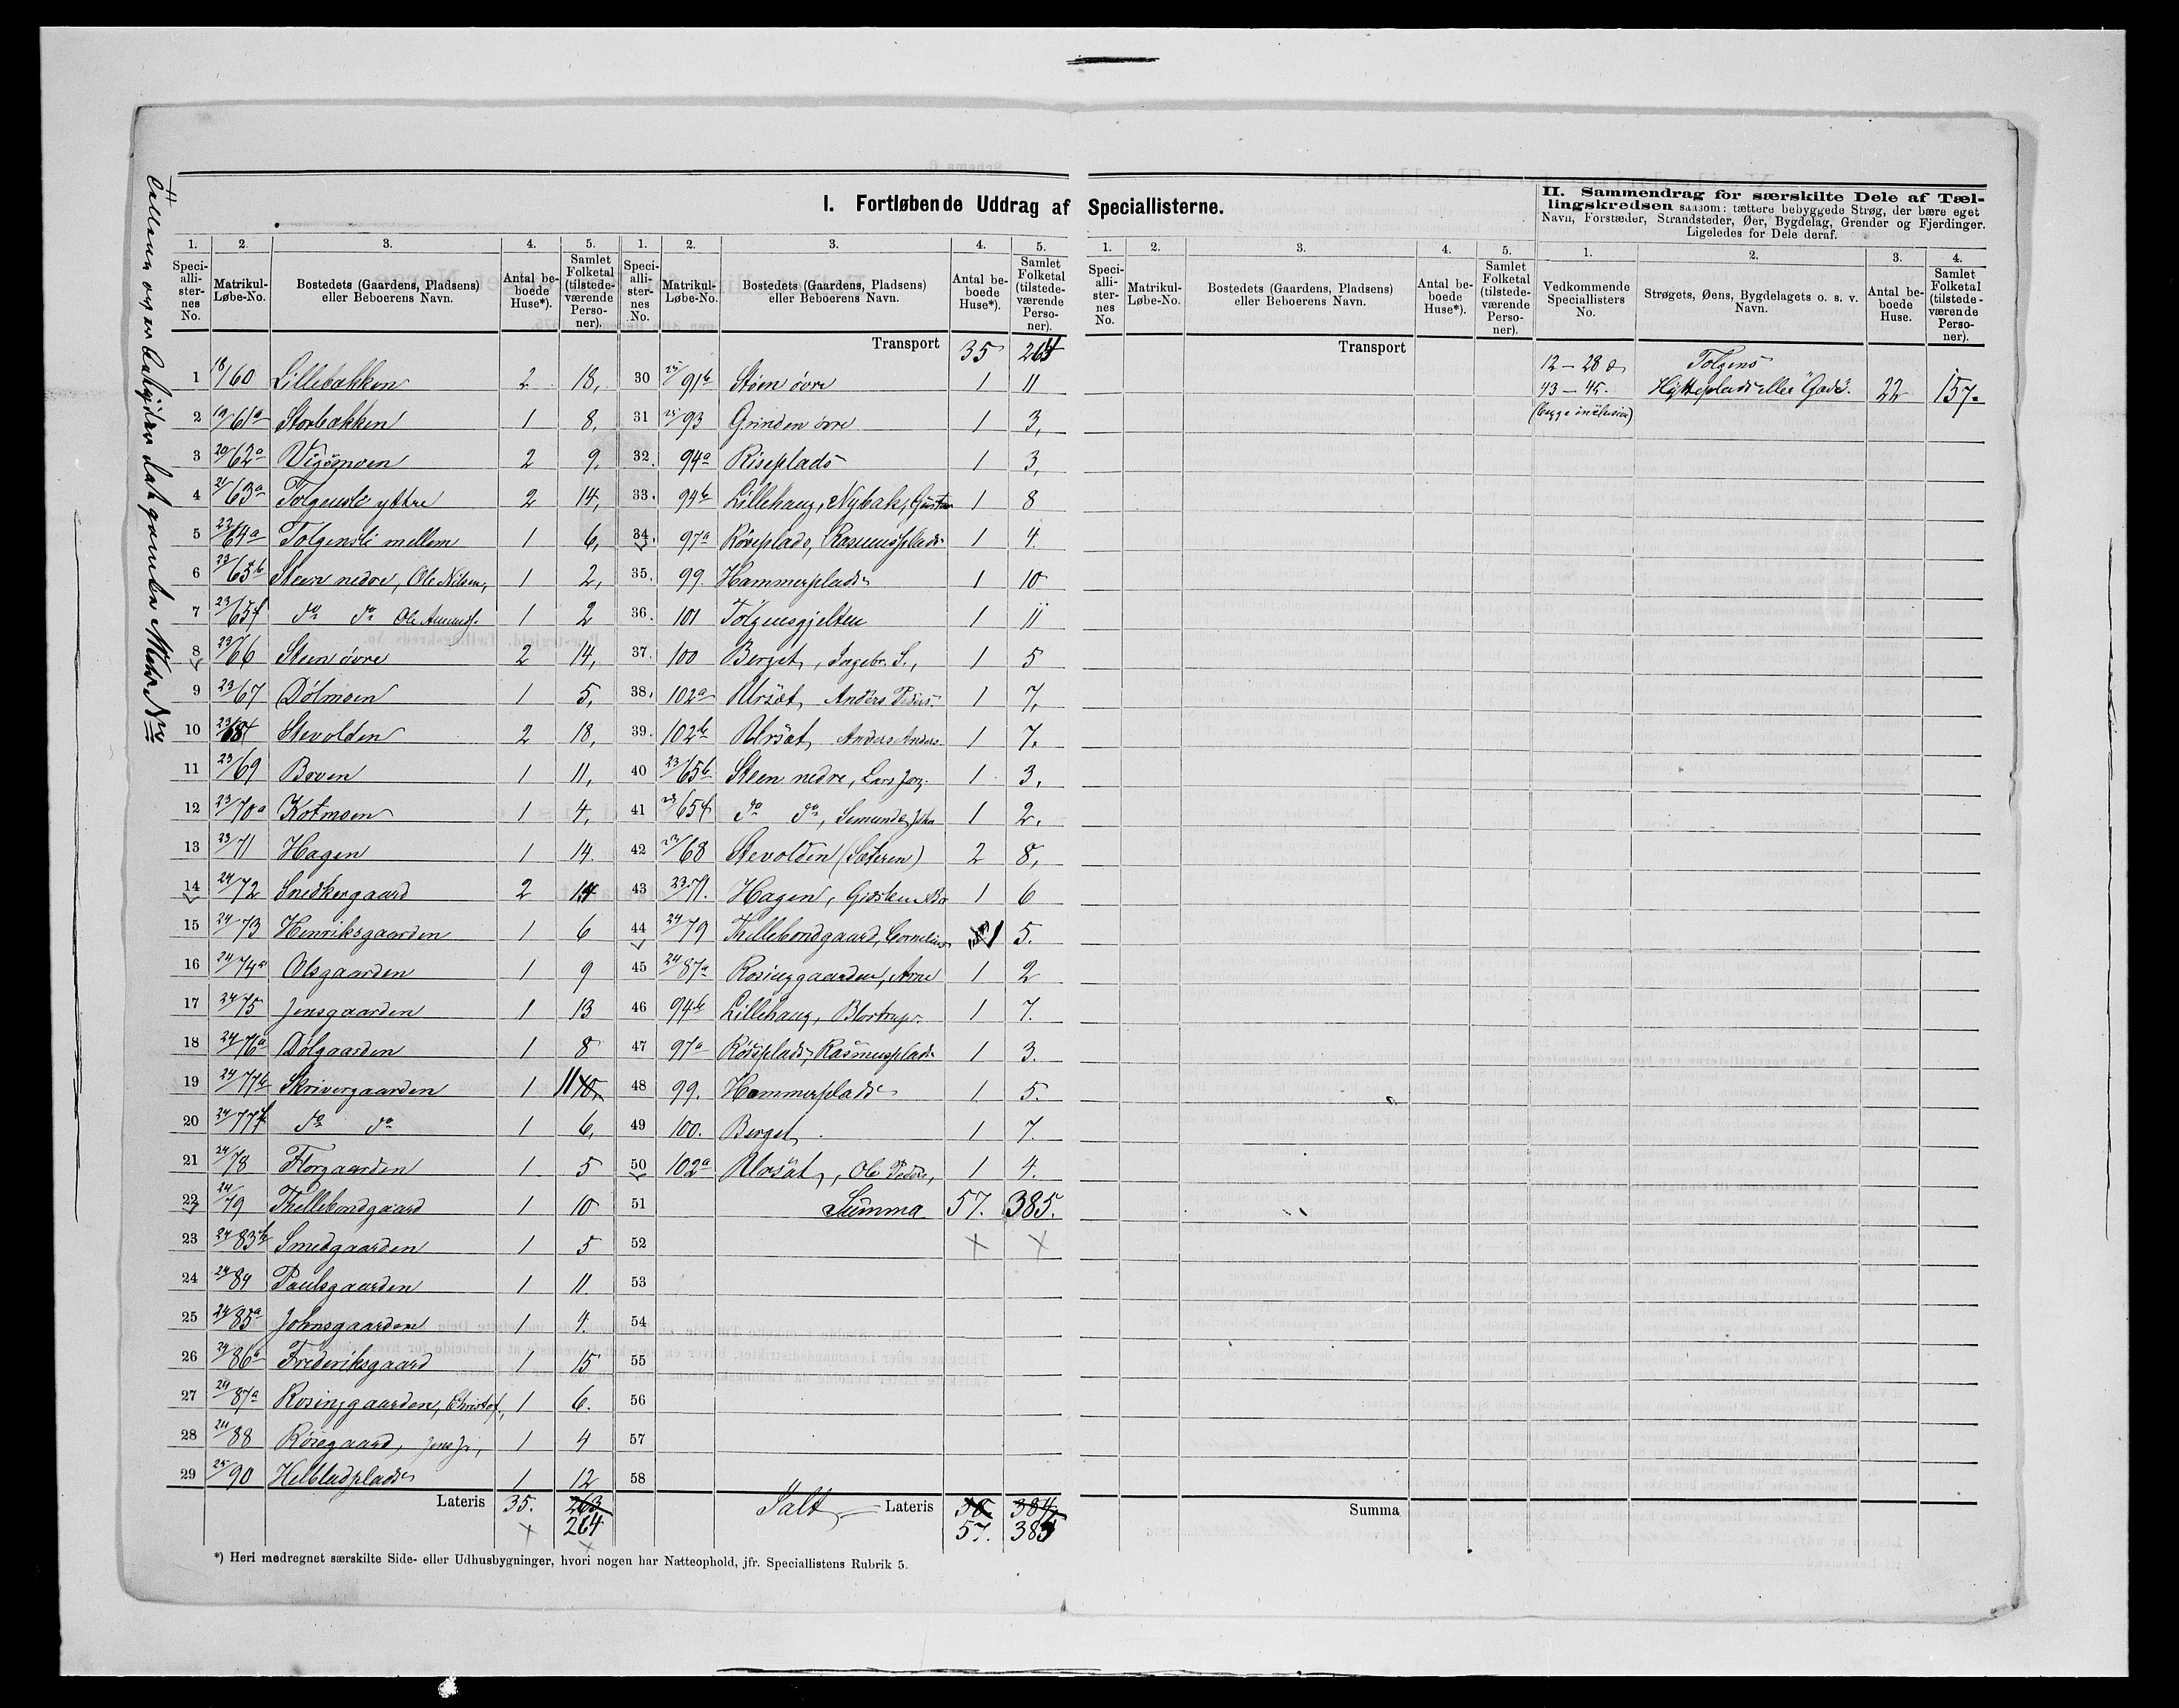 I. Fortløbende Uddrag af Speciallisterne.
II. Sammendrag for særskilte Dele af Tæl-
lingskredsen saasom: tættere bebyggede Strøg, der bære eget
Navn, Forstæder, Strandsteder, Øer, Bygdelag, Grender og Fjerdinger.
Ligeledes for Dele deraf.
1. 2. 3. 4. 5.
Speci-alli-ster-nes No. Matrikul-Løbe-No. Bostedets (Gaardens, Pladsens) eller Beboerens Navn. Antal be-boede Huse*). Samlet Folketal (tilstede-værende Perso-ner).
1 18/60 Lillebakken 2 18,
2 19/61a Storbakken 1 8,
3 20/62a Vigsmoen 2 9,
4 21/63a Tolgensli yttre 2 14,
5 22/64a Tolgensli mellem 1 6,
6 23/65b Steen nedre, Ole Nilsen, 1 2,
7 23/65f do do Ole Amunds. 1 2
8 23/66 Steen övre 2 14,
9 23/67 Dölmoen 1 5,
10 23/68 Stevolden 2 18,
11 23/69 Broen 1 11,
12 23/70a Kotmoen 1 4,
13 23/71 Hagen 1 14.
14 24/72 Snedkergaard 2 14
15 24/73 Henriksgaarden 1 6
16 24/74a Olsgaarden 1 9
17 24/75 Jensgaarden 1 13
18 24/76a Dölgaarden 1 8
19 24/77b Skrivergaarden 1 11 10,
20 24/77f do do 1 6,
21 24/78 Florgaarden 1 5
22 24/79 Thellebondgaard 1 10
23 24/83b Smedgaarden 1 5
24 24/84 Paulsgaarden 1 11.
25 24/85a Johnsgaarden 1 4.
26 24/86a Frederiksgaard 1 15
27 24/87a Rosinggaarden, Christof., 1 6.
28 24/88 Rösegaard, Jens Ja, 1 4
29 25/90 Helbladplads 1 12
Lateris 35. 263
264
1. 2. 3. 4. 5.
Speci-alli-ster-nes No. Matrikul-Løbe-No. Bostedets (Gaardens, Pladsens) eller Beboerens Navn. Antal be-boede Huse*). Samlet Folketal (tilstede-værende Perso-ner).
Transport 35 264
30 25/91b Stöen övre 1 11
31 25/93 Grinden övre 1 3,
32. 94a Riseplads 1 3,
33. 94b Lillehaug, Nybak, Gustav 1 8
34. 97a Röseplads, Rasmusplads 1 4.
35. 99. Hammerplads 1 10
36. 101 Tolgensgjelten 1 11
37. 100 Berget, Ingebr. S., 1 5
38. 102a Ursæt, Anders Peders. 1 7,
39. 102b Ursæt, Anders Anders. 1 7.
40 23/65b Steen nedre, Lars Jörg. 1 3,
41 23/65f do do, Semund John 1 2.
42 23/68 Stevolden (Sæteren) 2 8,
43 23.71. Hagen, 1 6
44 24/79 Thellebondgaard, Cornelius 1 5.
45 24/87a Rosinggaarden, Arne 1 2
46 94b Lillehaug, 1 7.
47 97a Röseplads, Rasmusplads 1 3.
48 99. Hammerplads 1 5.
49 100. Berget 1 7.
50 102a Ursæt, Ole Peders, 1 4.
51 Summa 57. 385.
52
53
54
55
56
57
58
Ialt Lateris 384,
57. 385
1. 2. 3. 4. 5.
Speci-alli-ster-nes No. Matrikul-Løbe-No. Bostedets (Gaardens, Pladsens) eller Beboerens Navn. Antal be-boede Huse*). Samlet Folketal (tilstede-værende Perso-ner).
Transport
Summa
1. 2. 3. 4.
Vedkommende Speciallisters No. Strøgets, Øens, Bygdelagets o. s. v. Navn. Antal be-boede Huse. Samlet Folketal (tilstede-værende Perso-ner).
12 – 28 Tolgens
43 – 45. Hytteplads eller "Gade". 22 157.
(begge inclusive)
*) Heri medregnet særskilte Side- eller Udhusbygninger, hvori nogen har Natteophold, jfr. Speciallistens Rubrik 5.